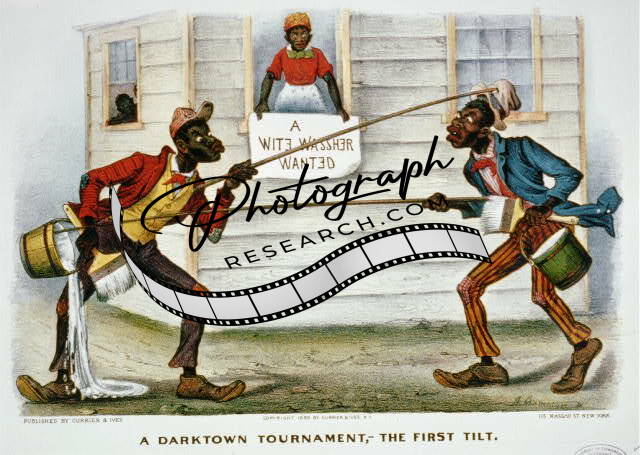 A
WITE WASSHER
WANTED
Photograph
RESEARCH.COM
PUBLISHED BY CURRIER & IVES
COPYRIGHT BY CURRIER & IVES, N.Y.
115 NASSAU ST NEW YORK.
A DARKTOWN TOURNAMENT,- THE FIRST TILT.